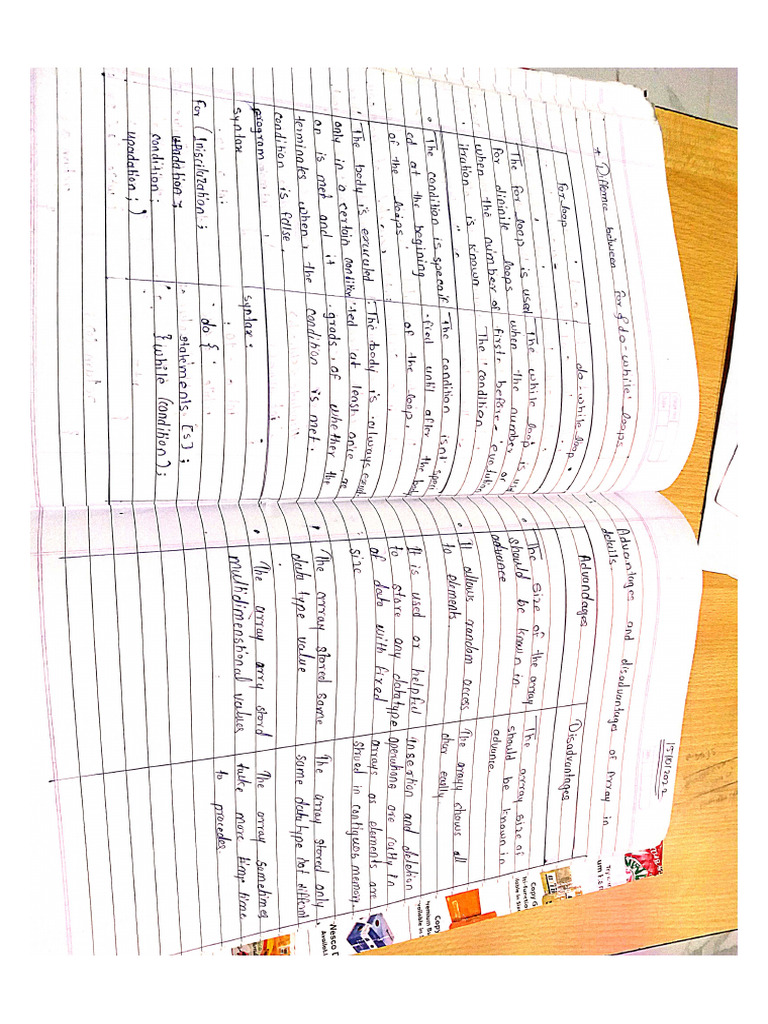 → Differnce between for & do-while loops
for loop
do-while loop
The for loop is used
for dininite loops
when the number of
itration is known
The while loop is
when the number or
first before
The condition
The condition is
at the begining
of the loops
The condition isn't
until after the
of the loop.
The body is executed
only in a certain condition
is met and it
terminates when the
condition is false.
The body is always
at least once
of whether the
condition is met.
program
syntax
for (
condition;
updation;)
syntax
do {
statements [s];
}while (condition);
15/10/2022
Advantages and disadvantages of Array in
details.
Advandages
Disadvantages
The size of the array
should be known in
advance
The array size of
should be known in
advance
It allows random access
to elements.
The array shows all
It is used or helpful
to store any datatype
of data with fixed
size
insertion and deletion
operations are
in
arrays as elements are
in contiguous memory.
The array stored same
data type value
The array stored only
same datatype not different
The array stord
multidimenstional values
The array sometimes
take more time time
to procedes.
Copy
Copy
Nesco